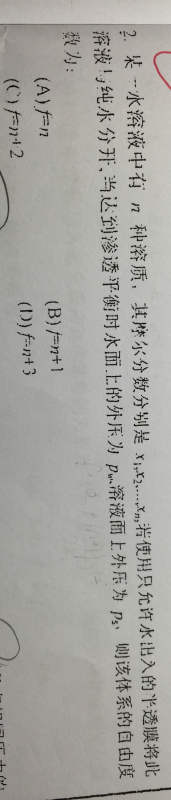 2. 某一水溶液中有 n 种溶质，其摩尔分数分别是 x₁,x₂,…,xₙ,若使用只允许水出入的半透膜将此
溶液与纯水分开，当达到渗透平衡时水面上的外压为 pw,溶液面上外压为 ps, 则该体系的自由度
数为：
(A) f=n (B) f=n+1
(C) f=n+2 (D) f=n+3